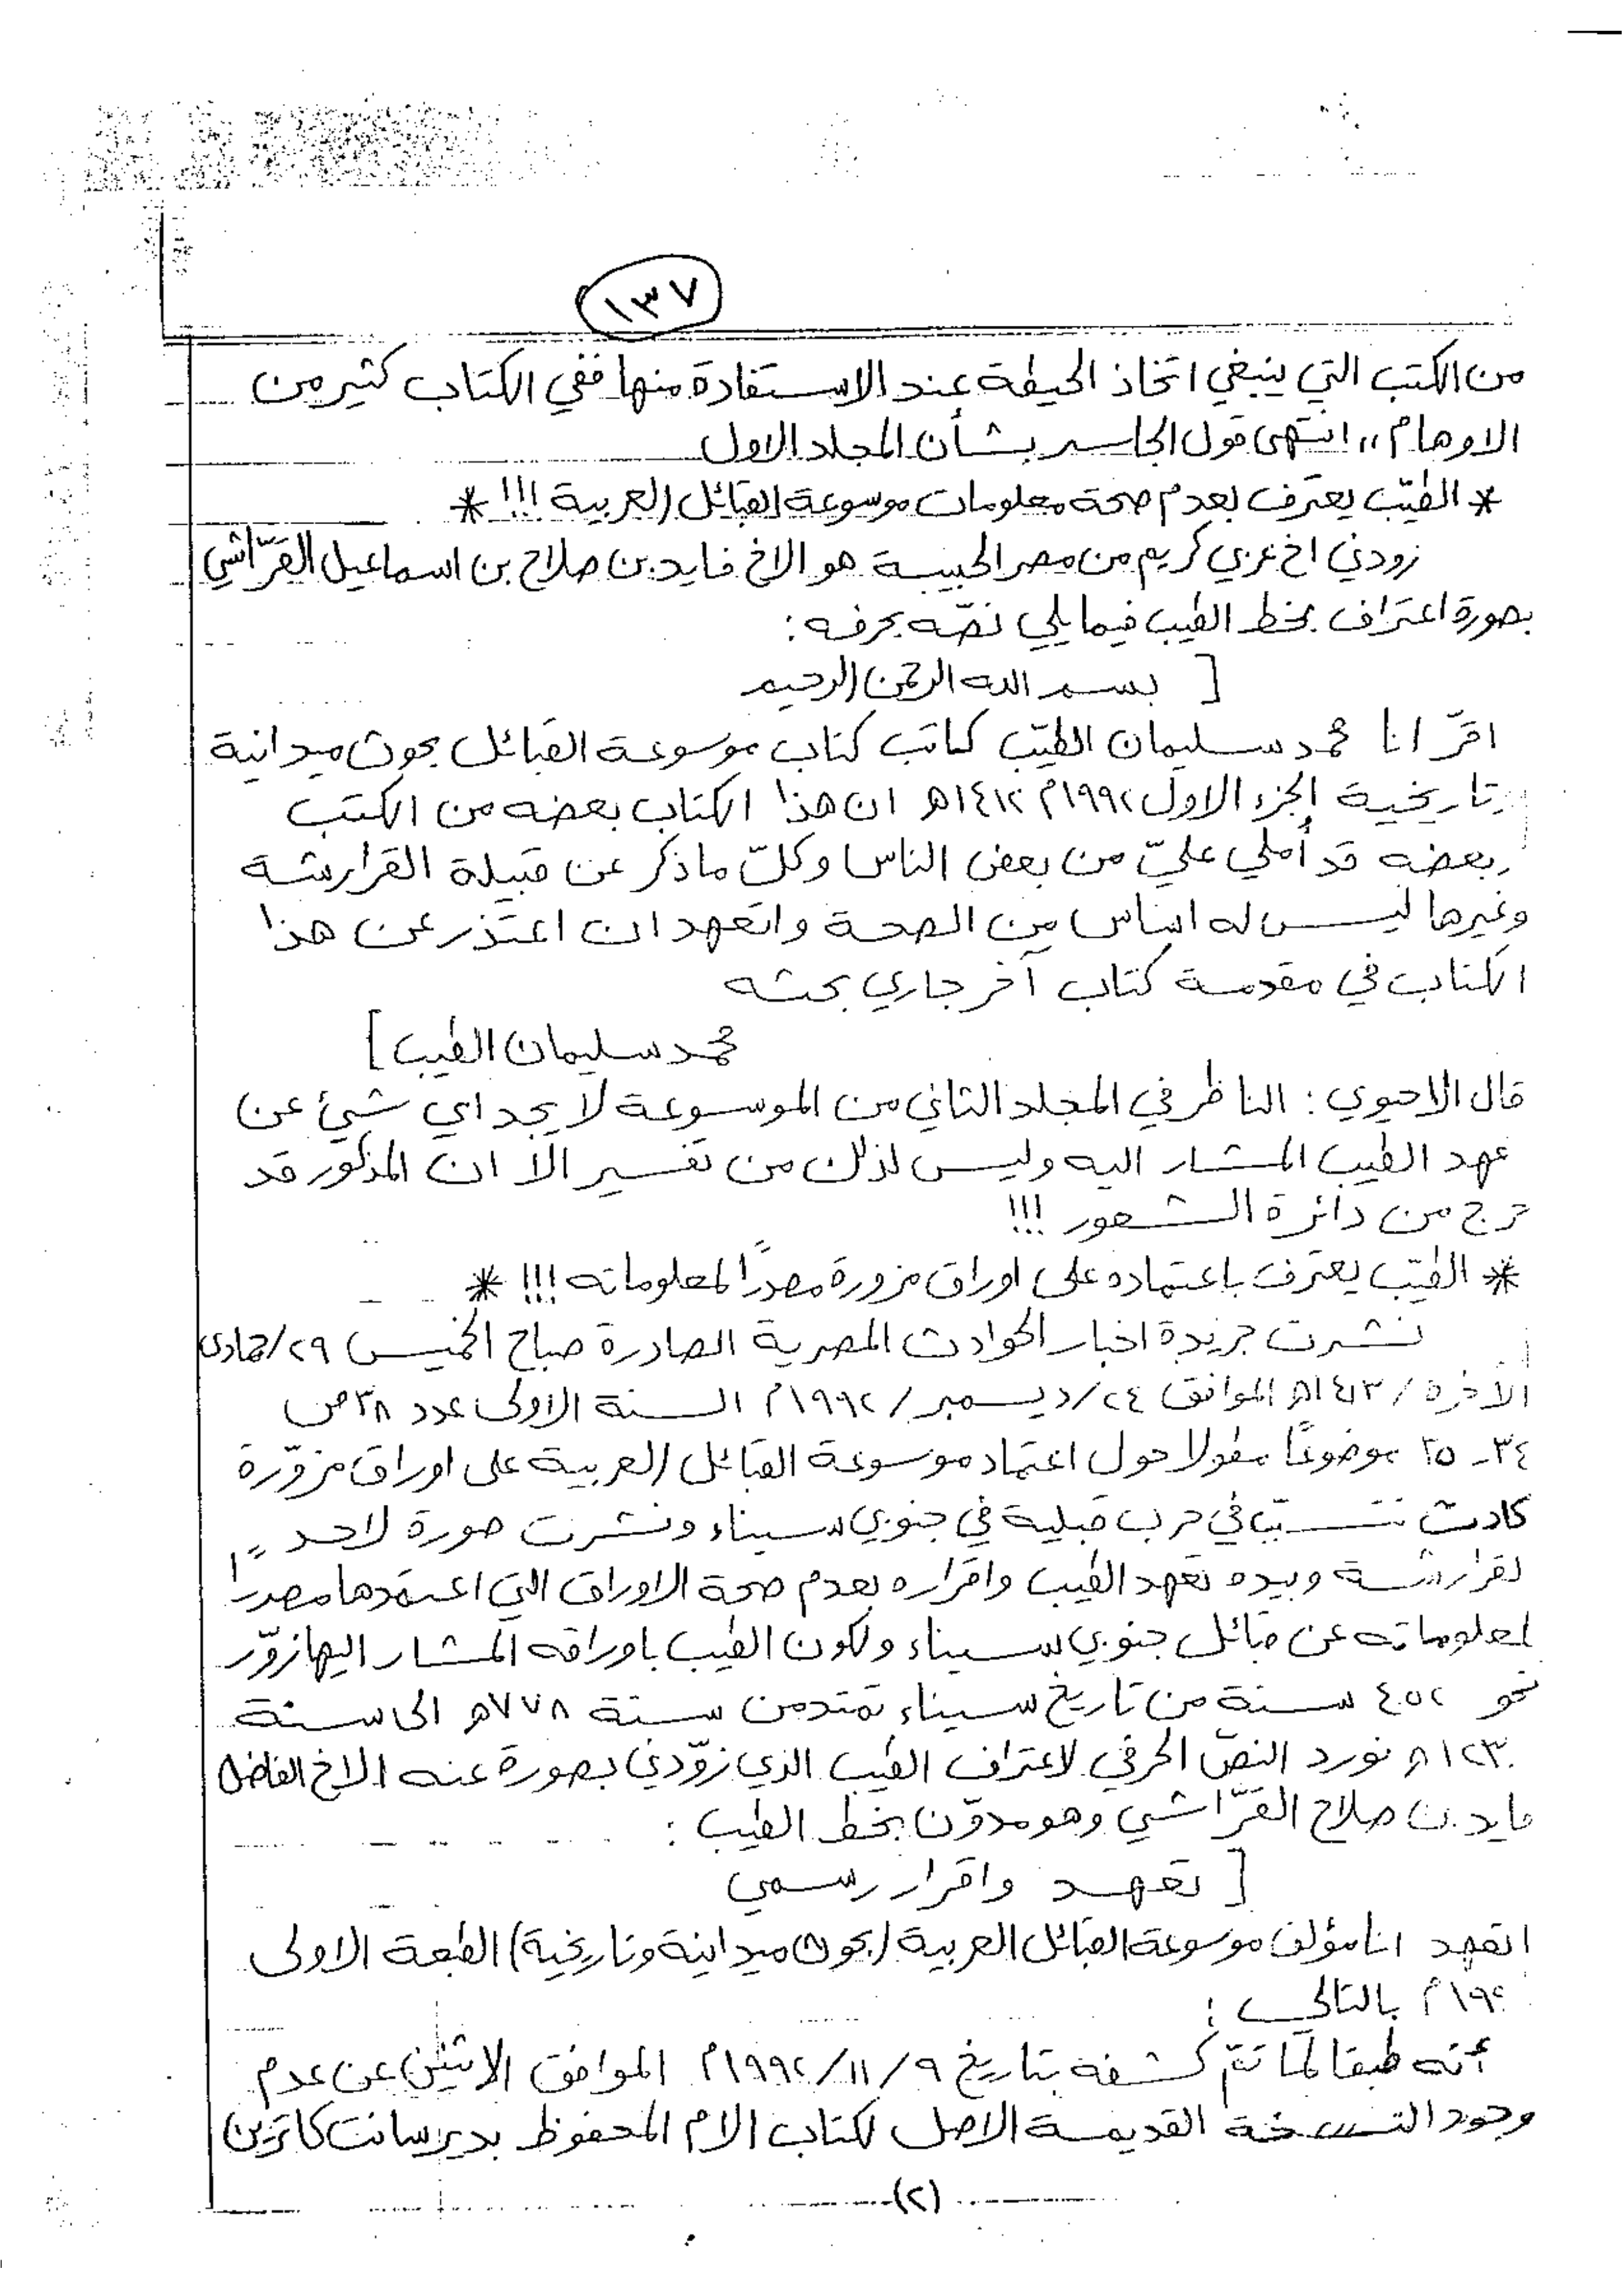 ١٣٧
من الكتب التي ينبغي اتخاذ الحيطة عند الاستفادة منها ففي الكتاب كثير من
الاوهام ,, انتهى قول الجاسر بشأن المجلد الاول
* الطيّب يعترف بعدم صحة معلومات موسوعة القبائل العربية !!! *
زودني اخ عزي كريم من مصر الحبيبة هو الاخ فايد بن صلاح بن اسماعيل القرّاشي
بصورة اعتراف بخط الطيب فيما يلي نصّه بحرفه :
[ بسم الله الرحمن الرحيم
اقرّ انا محمد سليمان الطيّب كاتب كتاب موسوعة القبائل بحوث ميدانية
تاريخية الجزء الاول ١٩٩٢م ١٤١٢هـ ان هذا الكتاب بعضه من الكتب
بعضه قد أملي عليّ من بعض الناس وكلّ ما ذكر عن قبيلة القرارشة
وغيرها ليس له اساس من الصحة واتعهد ان اعتذر عن هذا
الكتاب في مقدمة كتاب آخر جاري بحثه
محمد سليمان الطيب ]
قال الاحيوي : الناظر في المجلد الثاني من الموسوعة لا يجد اي شيئ عن
عهد الطيب المشار اليه وليس لذلك من تفسير الا ان المذكور قد
خرج من دائرة الشعور !!!
* الطيّب يعترف باعتماده على اوراق مزورة مصدرًا لمعلوماته !!! *
نشرت جريدة اخبار الحوادث المصرية الصادرة صباح الخميس ٢٩/جمادى
الآخرة / ١٤١٣هـ الموافق ٢٤/ديسمبر/١٩٩٢م السنة الاولى عدد ٣٨ ص
٣٤ـ ٣٥ موضوعًا مطولا حول اعتماد موسوعة القبائل العربية على اوراق مزوّرة
كادت تتسبّب في حرب قبلية في جنوبي سيناء ونشرت صورة لاحد
لقرارشة وبيده تعهد الطيب واقراره بعدم صحة الاوراق التي اعتمدها مصدرًا
لمعلوماته عن قبائل جنوبي سيناء ولكون الطيب باوراقه المشار اليها زوّر
نحو ٤٥٢ سنة من تاريخ سيناء تمتد من سنة ٧٧٨هـ الى سنة
١٢٣٠هـ نورد النصّ الحرفي لاعتراف الطيب الذي زوّدني بصورة عنه الاخ الفاضل
فايد بن صلاح القرّاشي وهو مدوّن بخط الطيب :
[ تعهد واقرار رسمي
اتعهد انا مؤلف موسوعة القبائل العربية (بحوث ميدانية وتاريخية) الطبعة الاولى
بالتالي :
أنه طبقا لما تمّ كشفه بتاريخ ٩/١١/١٩٩٢م الموافق الاثنين عن عدم
وجود النسخة القديمة الاصل لكتاب الام المحفوظ بدير سانت كاترين
(٢)